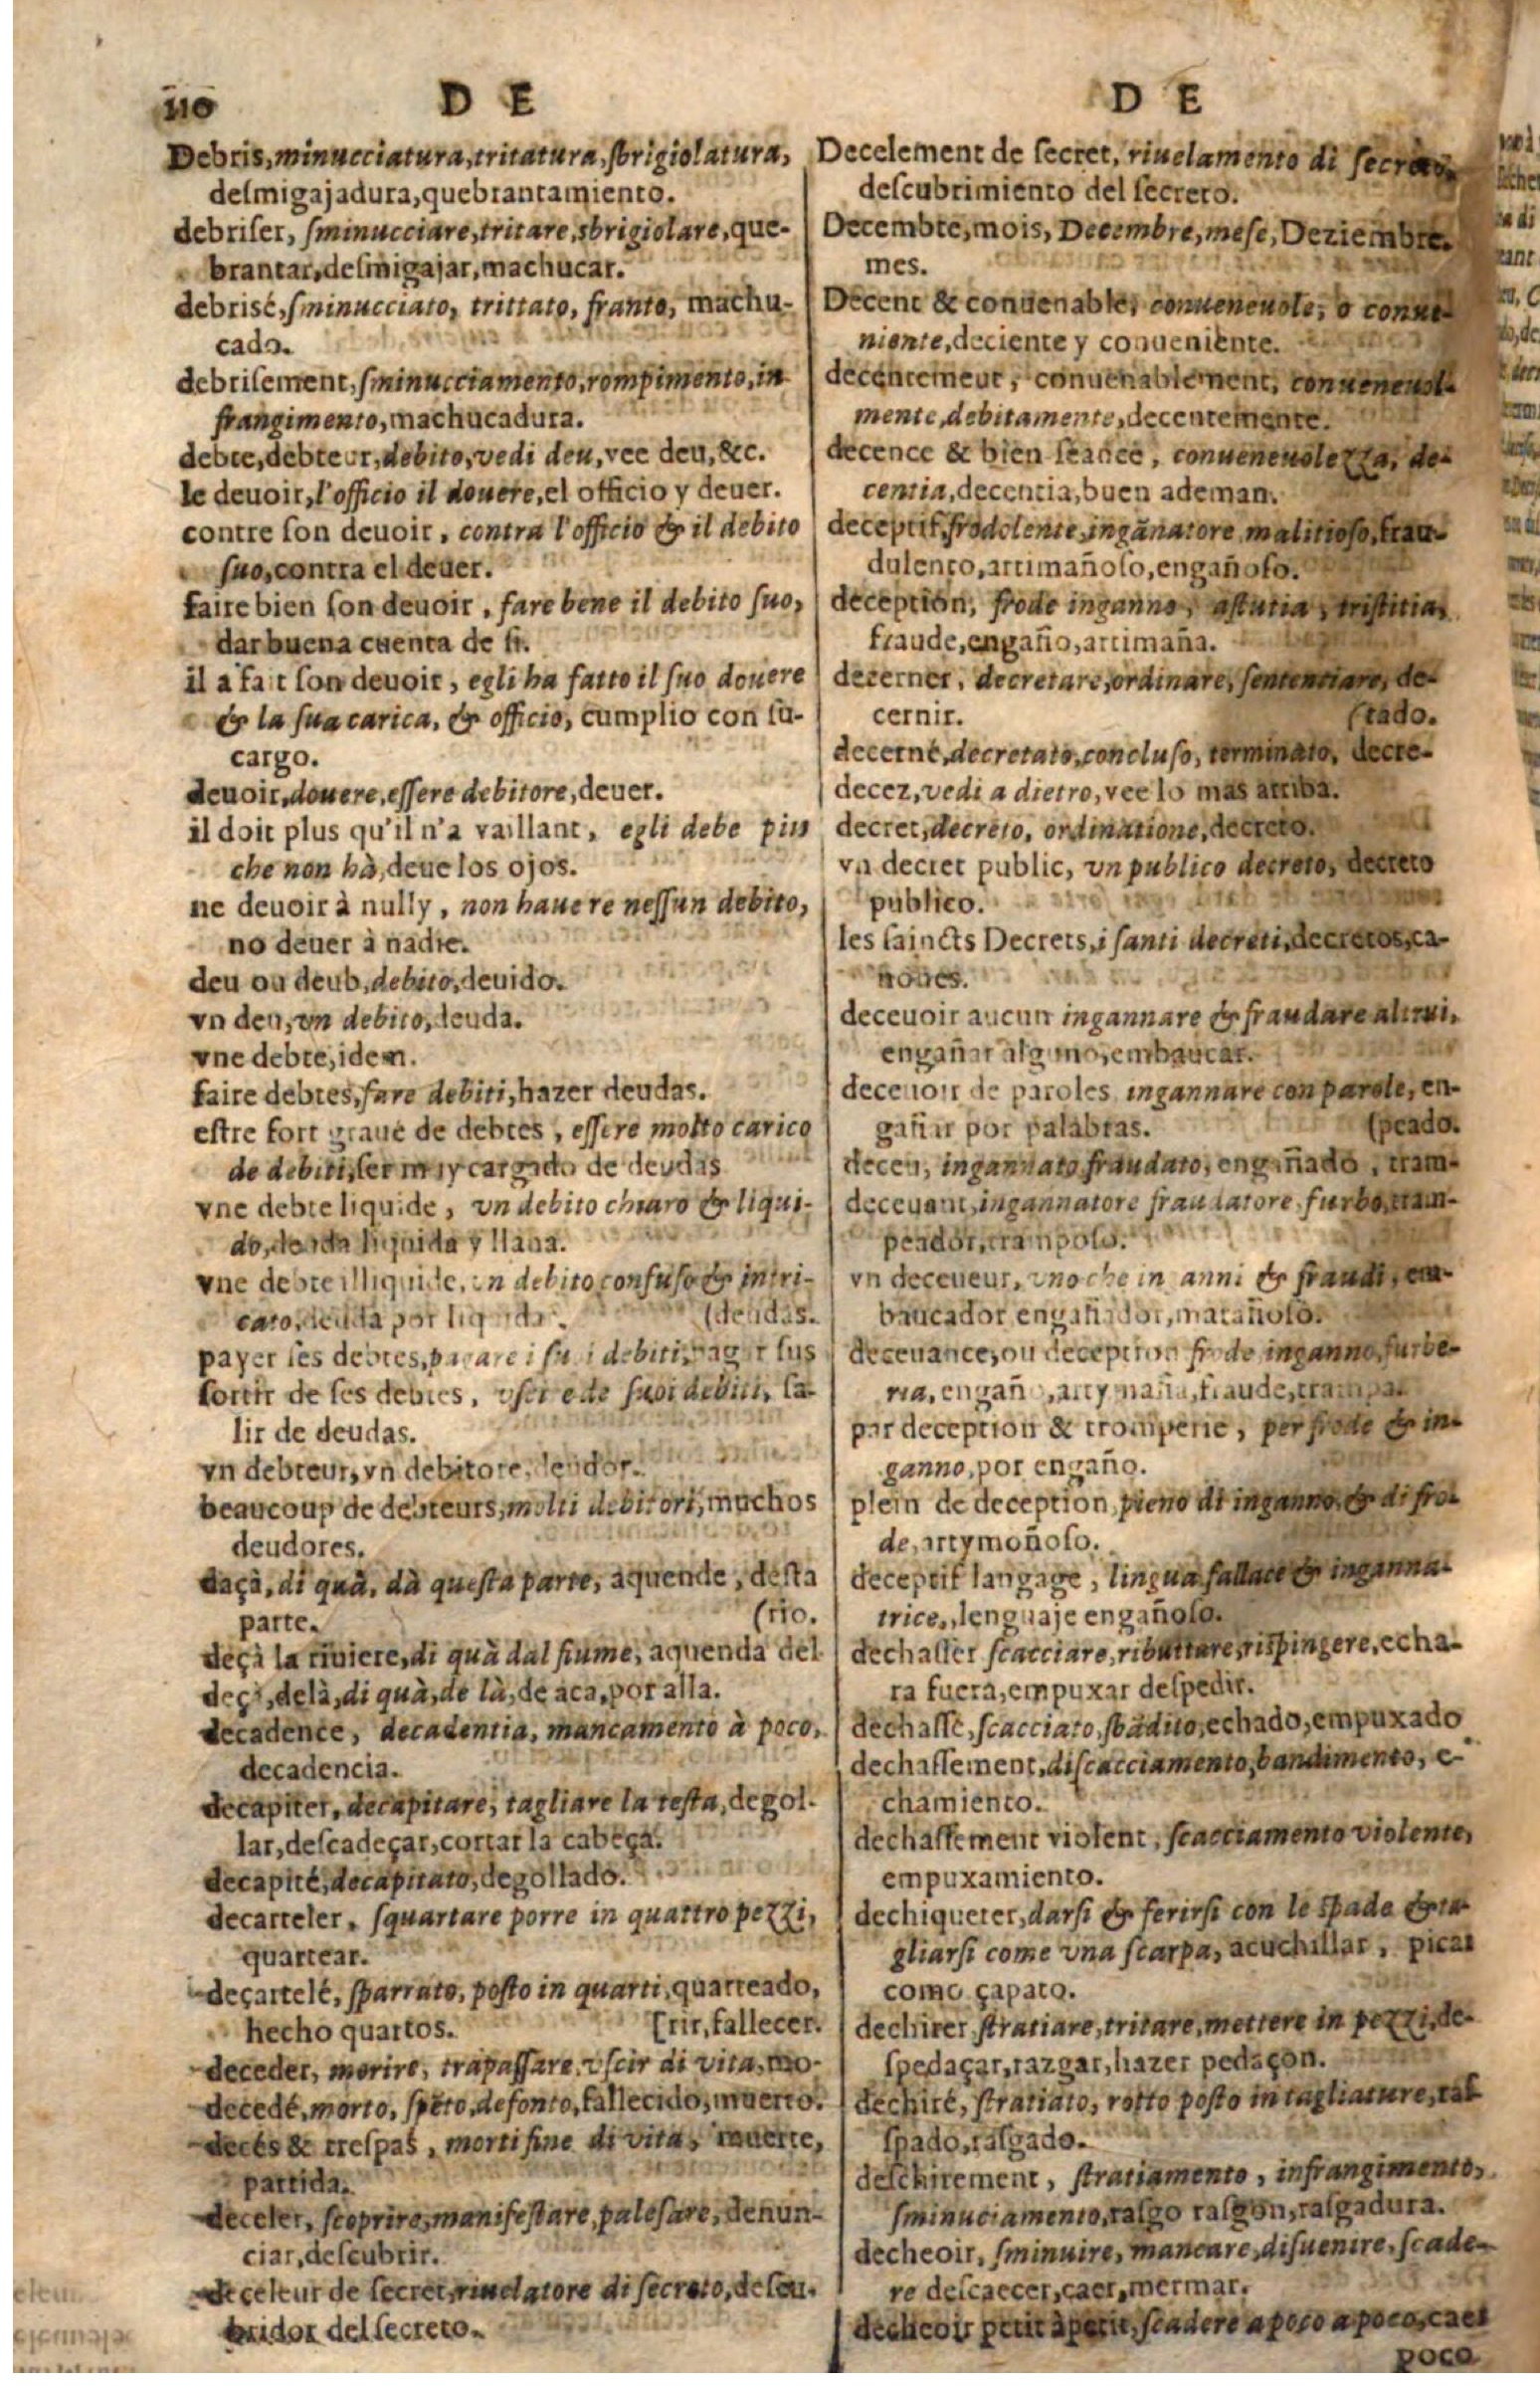 110 D E
Debris, minucciatura, tritatura, sbrigiolatura,
desmigajadura, quebrantamiento.
debriſer, ſminucciare, tritare, sbrigiolare, que-
brantar, deſmigajar, machucar.
debrisé, ſminucciato, trittato, franto, machu-
cado.
debriſement, ſminucciamento, rompimento, in-
frangimento, machucadura.
debte, debteur, debito, vedi deu, vee deu, &c.
le deuoir, l'officio il douere, el officio y deuer.
contre ſon deuoir, contra l'officio & il debito
ſuo, contra el deuer.
faire bien ſon deuoir, fare bene il debito ſuo,
dar buena cuenta de ſi.
il a fait ſon deuoir, egli ha fatto il ſuo douere
& la ſua carica, & officio, cumplio con ſu-
cargo.
deuoir, douere, eſſere debitore, deuer.
il doit plus qu'il n'a vaillant, egli debe piu
che non hà, deue los ojos.
ne deuoir à nully, non hauere neſſun debito,
no deuer à nadie.
deu ou deub, debito, deuido.
vn deu, vn debito, deuda.
vne debte, idem.
faire debtes, fare debiti, hazer deudas.
eſtre fort graué de debtes, eſſere molto carico
de debiti, ſer muy cargado de deudas
vne debte liquide, vn debito chiaro & liqui-
do, deuda liquida y llana.
vne debte illiquide, vn debito confuſo & intri-
cato, deuda por liquidar. (deudas.
payer ſes debtes, pagare i ſuoi debiti, pagar ſus
ſortir de ſes debtes, vſcire de ſuoi debiti, ſa-
lir de deudas.
vn debteur, vn debitore, deudor.
beaucoup de debteurs, molti debitori, muchos
deudores.
daçà, di quà, dà queſta parte, aquende, deſta
parte. (rio.
deçà la riuiere, di quà dal fiume, aquenda del
deçà, delà, di quà, de là, de aca, por alla.
decadence, decadentia, mancamento à poco,
decadencia.
decapiter, decapitare, tagliare la teſta, degol-
lar, deſcadeçar, cortar la cabeça.
decapité, decapitato, degollado.
decarteler, ſquartare porre in quattro pezzi,
quartear.
deçartelé, ſparrato, poſto in quarti, quarteado,
hecho quartos. [rir, fallecer.
deceder, morire, trapaſſare, vſcir di vita, mo-
decedé, morto, ſpēto, defonto, fallecido, muerto.
decés & treſpas, morti fine di vita, muerte,
partida.
deceler, ſcoprire, manifeſtare, paleſare, denun-
ciar, deſcubrir.
deceleur de ſecret, riuelatore di ſecreto, deſcu-
bridor del ſecreto.
D E
Decelement de ſecret, riuelamento di ſecreto,
deſcubrimiento del ſecreto.
Decembre, mois, Decembre, meſe, Deziembre,
mes.
Decent & conuenable, conueneuole, o conue-
niente, deciente y conueniente.
decentement, conuenablement, conueneuol-
mente, debitamente, decentemente.
decence & bien ſeance, conueneuolezza, de-
centia, decentia, buen ademan.
deceptif, frodolente, ingānatore, malitioſo, frau-
dulento, artimañoſo, engañoſo.
deception, frode inganno, aſtutia, triſtitia,
fraude, engaño, artimaña.
decerner, decretare, ordinare, ſententiare, de-
cernir. (tado.
decerné, decretato, concluſo, terminato, decre-
decez, vedi a dietro, vee lo mas arriba.
decret, decreto, ordinatione, decreto.
vn decret public, vn publico decreto, decreto
publico.
les ſaincts Decrets, i ſanti decreti, decretos, ca-
nones.
deceuoir aucun ingannare & fraudare altrui,
engañar alguno, embaucar.
deceuoir de paroles ingannare con parole, en-
gañar por palabras. (peado.
deceu, ingannato fraudato, engañado, tram-
deceuant, ingannatore fraudatore, furbo, tram-
peador, trampoſo.
vn deceueur, vno che inganni & fraudi, em-
baucador engañador, matañoſo.
deceuance, ou deception frode inganno, furbe-
ria, engaño, artymaña, fraude, trampa.
par deception & tromperie, per frode & in-
ganno, por engaño.
plein de deception, pieno di inganno, & di fro-
de, artymoñoſo.
deceptif langage, lingua fallace & inganna-
trice, lenguaje engañoſo.
dechaſſer ſcacciare, ributtare, riſpingere, echa-
ra fuera, empuxar deſpedir.
dechaſſé, ſcacciato, ſbādito, echado, empuxado
dechaſſement, diſcacciamento, bandimento, e-
chamiento.
dechaſſement violent, ſcacciamento violente,
empuxamiento.
dechiqueter, darſi & ferirſi con le ſpade & ta-
gliarſi come vna ſcarpa, acuchillar, picar
como çapato.
dechirer ſtratiare, tritare, mettere in pezzi, de-
ſpedaçar, razgar, hazer pedaçon.
dechiré, ſtratiato, rotto poſto in tagliature, raſ-
ſpado, raſgado.
deſchirement, ſtratiamento, infrangimento,
ſminuciamento, raſgo raſgon, raſgadura.
decheoir, ſminuire, mancare, diſuenire, ſcade-
re deſcaecer, caer, mermar.
decheoir petit à petit, ſcadere a poco a poco, caer
poco